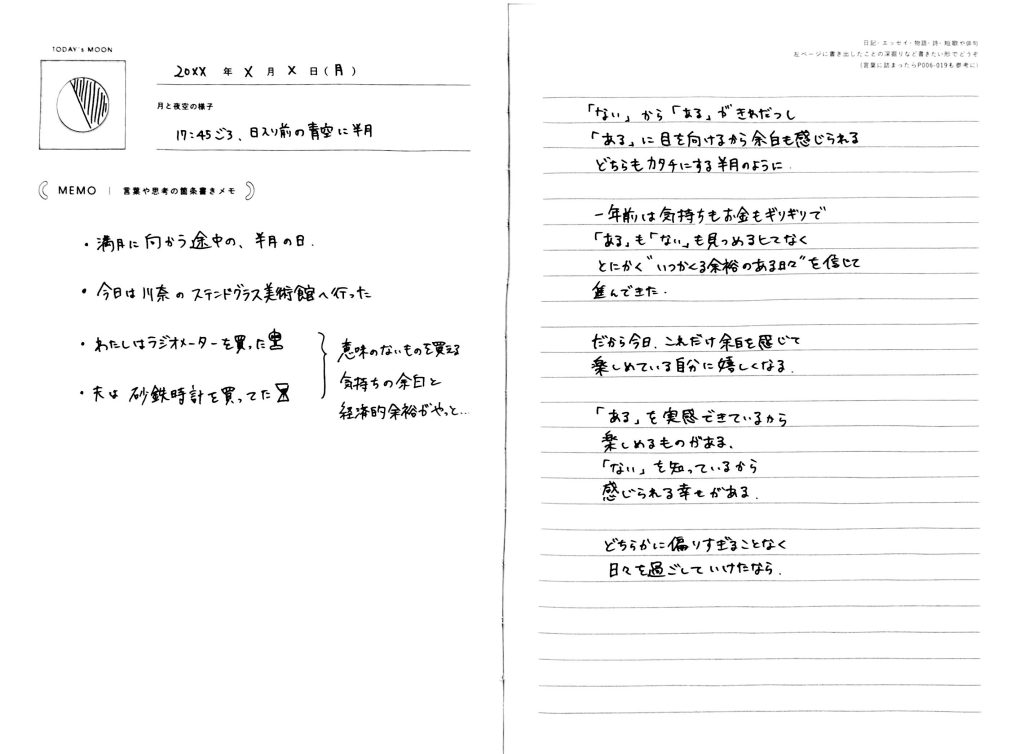 TODAY's MOON
20XX 年 X 月 X 日(月)
月と夜空の様子
17:45ごろ、日入り前の青空に半月
MEMO | 言葉や思考の箇条書きメモ
・満月に向かう途中の、半月の日.
・今日は川奈のステンドグラス美術館へ行った
・わたしはラジオメーターを買った
・夫は砂鉄時計を買ってた
意味のないものを買える
気持ちの余白と
経済的余裕がやっと…
日記・エッセイ・物語・詩・短歌や俳句
左ページに書き出したことの深掘りなど書きたい形でどうぞ
(言葉に詰まったらP006-019も参考に)
「ない」から「ある」がきわだつし
「ある」に目を向けるから余白も感じられる
どちらもカタチにする半月のように.
一年前は気持ちもお金もギリギリで
「ある」も「ない」も見つめるヒマなく
とにかく"いつかくる余裕のある日々"を信じて
進んできた.
だから今日、これだけ余白を感じて
楽しめている自分に嬉しくなる.
「ある」を実感できているから
楽しめるものがある、
「ない」を知っているから
感じられる幸せがある.
どちらかに偏りすぎることなく
日々を過ごしていけたなら.